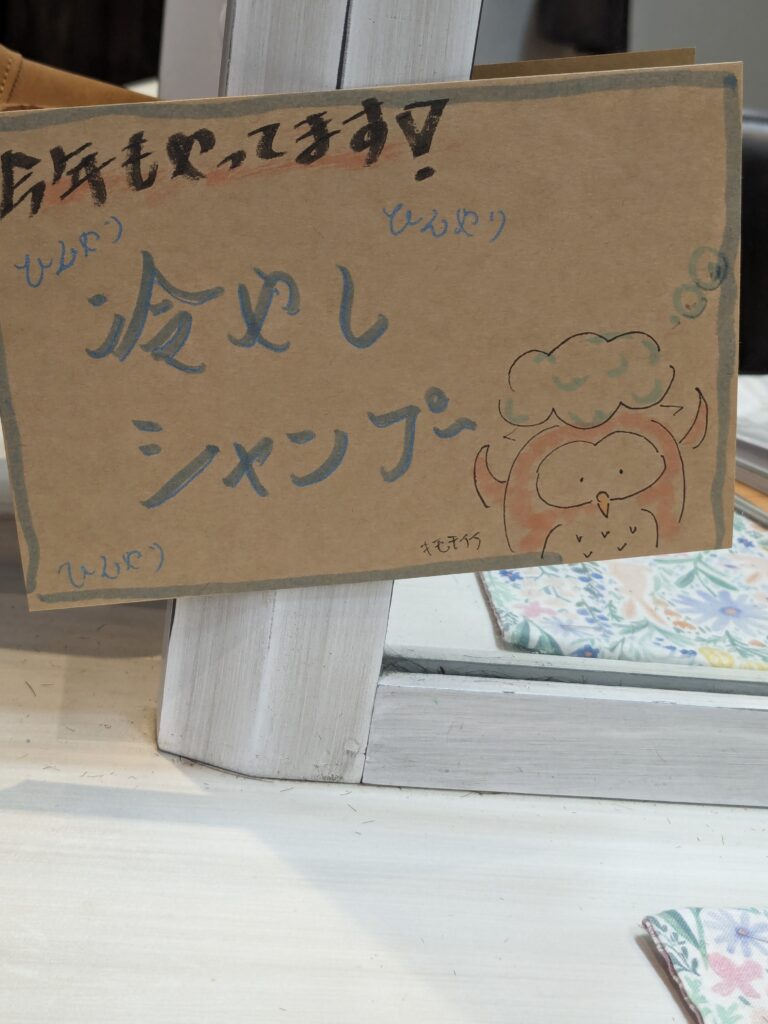 今年もやってます!
ひんやり
ひんやり
冷やし
シャンプー
ひんやり